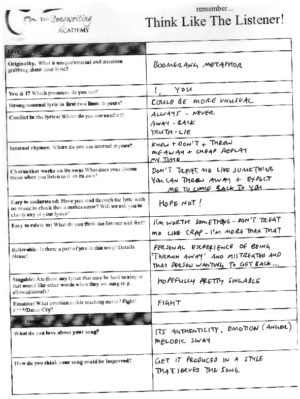 remember...
The Songwriting
ACADEMY
Think Like The Listener!
Originality: What is unique/unusual and attention
grabbing about your lyric?
BOOMERANG METAPHOR
You & I? Which pronouns do you use?
I, YOU
Strong/unusual lyric in first two lines: Is yours?
COULD BE MORE UNUSUAL
Conflict in the lyrics: Where do you use conflict?
ALWAYS - NEVER
AWAY - BACK
TRUTH - LIE
Internal rhymes: Where do you use internal rhymes?
KNOW + DON'T + THROW
ME AWAY + CHEAP REPLAY
MY TIME
Chorus that works on its own: What does your chorus
mean when you listen to it on its own?
DON'T TREAT ME LIKE SOMETHING
YOU CAN THROW AWAY + EXPECT
ME TO COME BACK TO YOU
Easy to understand: Have you read through the lyric with
no music to check that it makes sense? Will we ask you to
clarify any of your lyrics?
HOPE NOT!
Easy to relate to: What do you think the listener will feel?
I'M WORTH SOMETHING - DON'T TREAT
ME LIKE CRAP - I'M MORE THAN THAT
Believable: Is there a part of you in this song? Details
please!
PERSONAL EXPERIENCE OF BEING
'THROWN AWAY' AND MISTREATED AND
THAT PERSON WANTING TO GO BACK...
Singable: Are there any lyrics that may be hard to sing or
that sound like other words when they are sung (e.g.
HOPEFULLY PRETTY SINGABLE
Emotive: What emotion is this reaching out to? Fight/
F***/Dance/Cry?
FIGHT
What do you love about your song?
ITS AUTHENTICITY, EMOTION (ANGER)
MELODIC SWAY
How do you think your song could be improved?
GET IT PRODUCED IN A STYLE
THAT SERVES THE SONG.